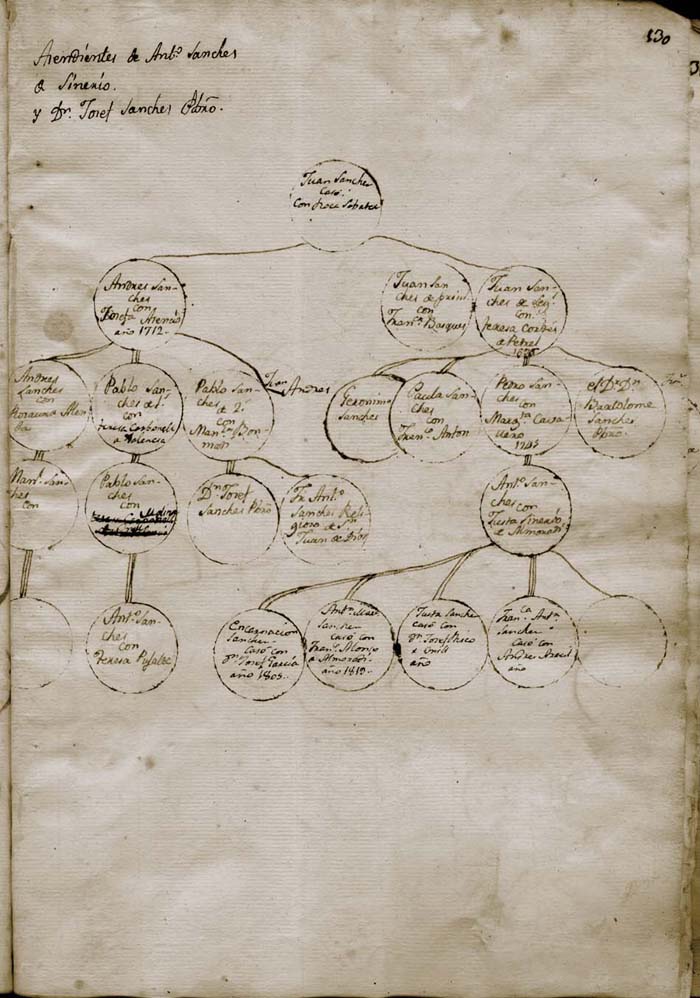 130
Acendientes de Antº. Sanches
de Sinerio.
y Dr. Josef Sanches Pbrõ.
Juan Sanches
casó
con
Andres San-
ches
con
Josefa Atencio
año 1712.
Juan San
ches de prim
con
Franca. Basques
Juan San-
ches de Seg
con
teresa Cortes
de Petrel
Andres
Sanches
con
Pablo San-
ches de 1.
con
teresa Carbonell
a Valencia
Pablo San-
ches
de 2.
con
Manla.
Andres
Geronimo
Sanches
Paula San-
ches
con
Franco. Anton
Pedro San-
ches
con
Margta.
1745
el Dr. Dn.
Bartolome
Sanches
Pbrõ.
Manl. San-
ches
con
Pablo San-
ches
con
Dn. Josef
Sanches Pbrõ
Fr. Antº.
Sanches Reli
gioso de Sn.
Juan de Dios
Antº. San-
ches
con
Justa Sinerio
de Almoradi
Antº. San-
ches
con
teresa
Encarnacion
Sanches
Casó con
Dn. Josef Garcia
año 1805.
Antª.
Sanches
casó con
Franco. Alonso
a Almoradi
año 1819.
Justa Sanches
casó con
Dn. Josef
a
año
Franca. Antª.
Sanches
Casó con
Andres
año